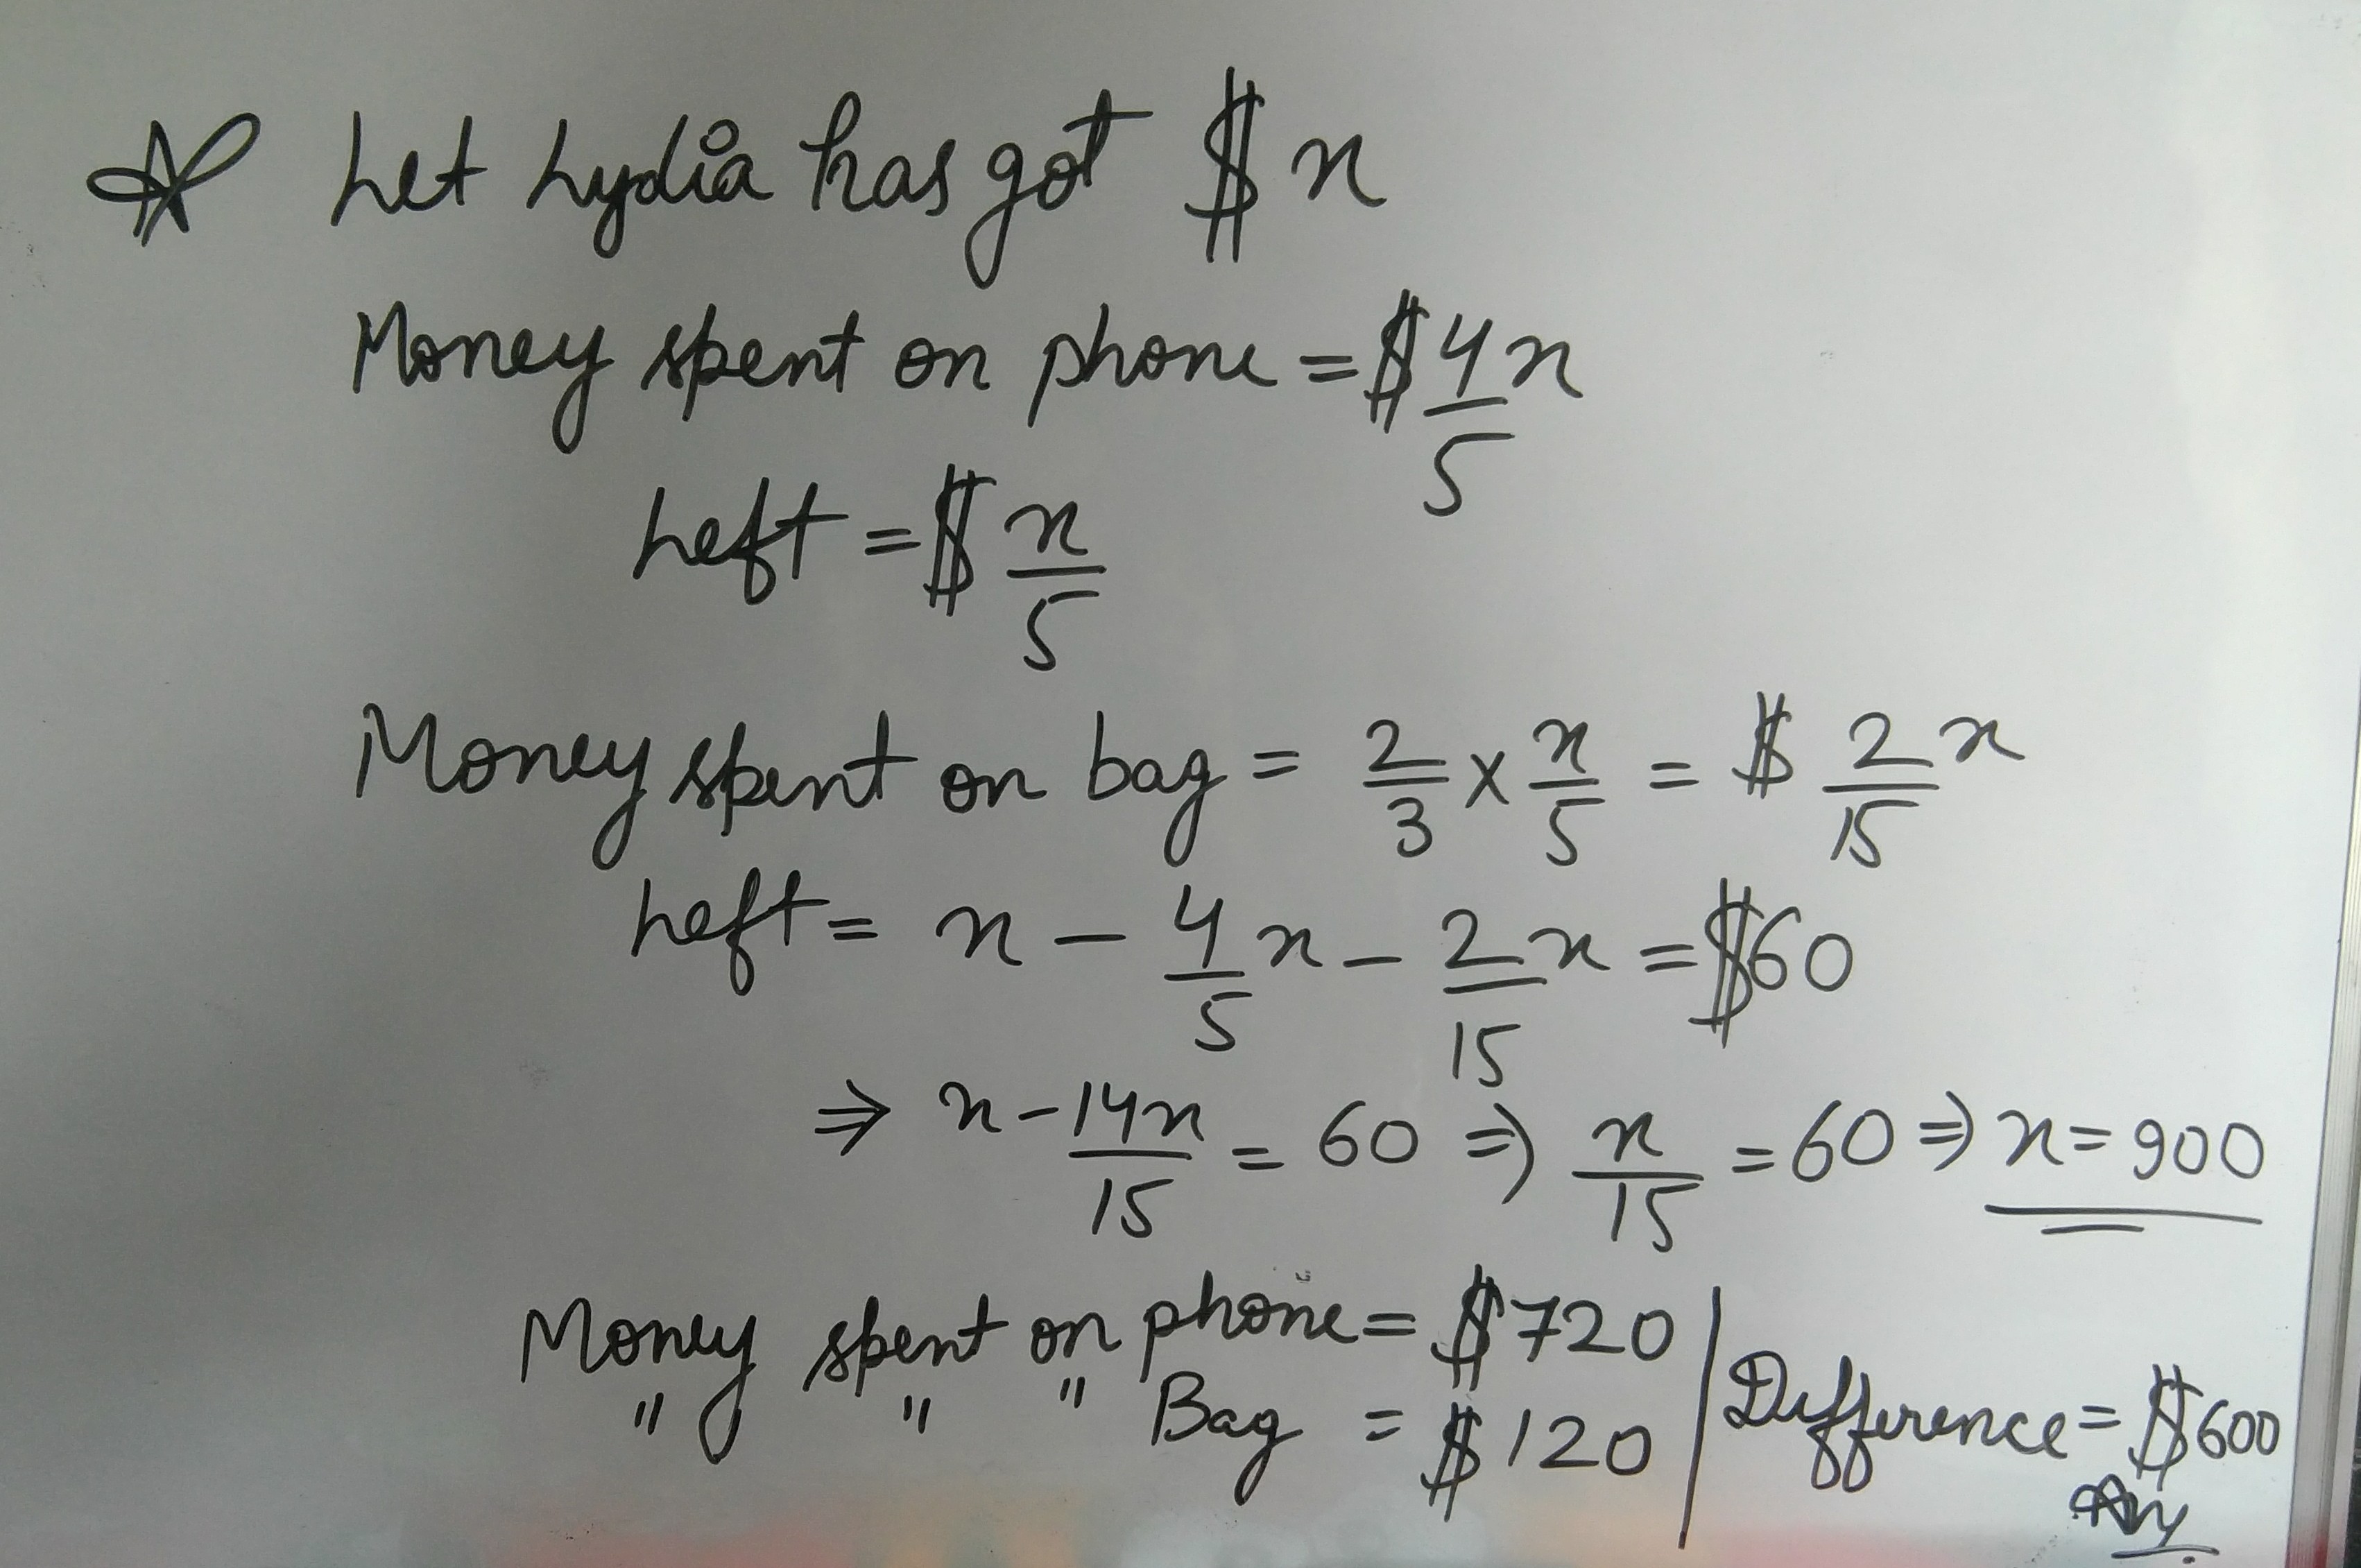 Let Lydia has got $ x
Money spent on phone = $ 4/5 x
Left = $ x/5
Money spent on bag = 2/3 × x/5 = $ 2/15 x
Left = x - 4/5 x - 2/15 x = $60
⇒ x - 14x/15 = 60 ⇒ x/15 = 60 ⇒ x = 900
Money spent on phone = $720
" " " Bag = $120
Difference = $600
Ans